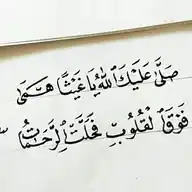 صَلَّى عَلَيْكَ ٱللَّهُ يَا غَيْثًا هَمَى
فَوْقَ ٱلْقُلُوبِ فَحَلَّتِ ٱلرَّحَمَاتُ